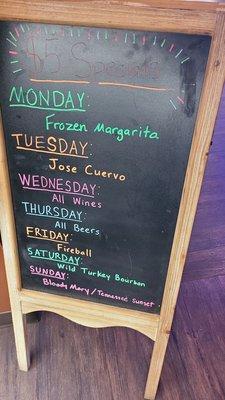 $5 Specials
MONDAY:
Frozen Margarita
TUESDAY:
Jose Cuervo
WEDNESDAY:
All Wines
THURSDAY:
All Beers
FRIDAY:
Fireball
SATURDAY:
Wild Turkey Bourbon
SUNDAY:
Bloody Mary / Tennessee Sunset